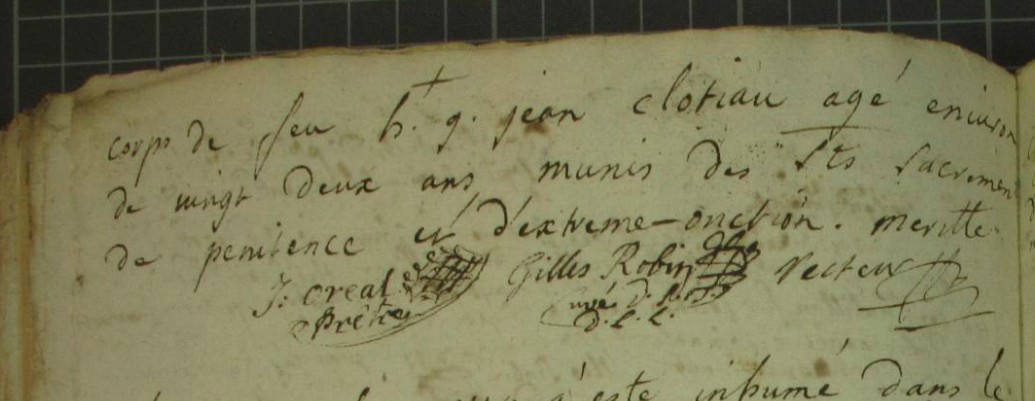 corps de feu h. g. jean clotiau agé environ
de vingt deux ans munis des Sts Sacremen
de penitence et d'extreme-onction. merille
J: oreal Gilles Robin recteur
Prêtre curé D. L. L.
a este inhumé dans le